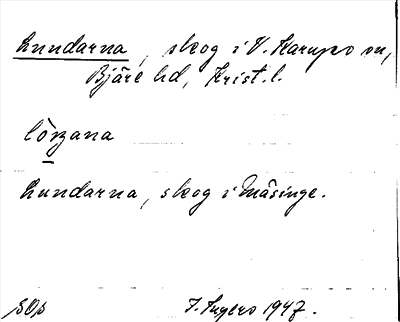 Lundarna, skog i V. Karups sn,
Bjäre hd, Krist. l.
lò̱zana
Lundarna, skog i Måsinge.
SOs
J. Ingers 1947.